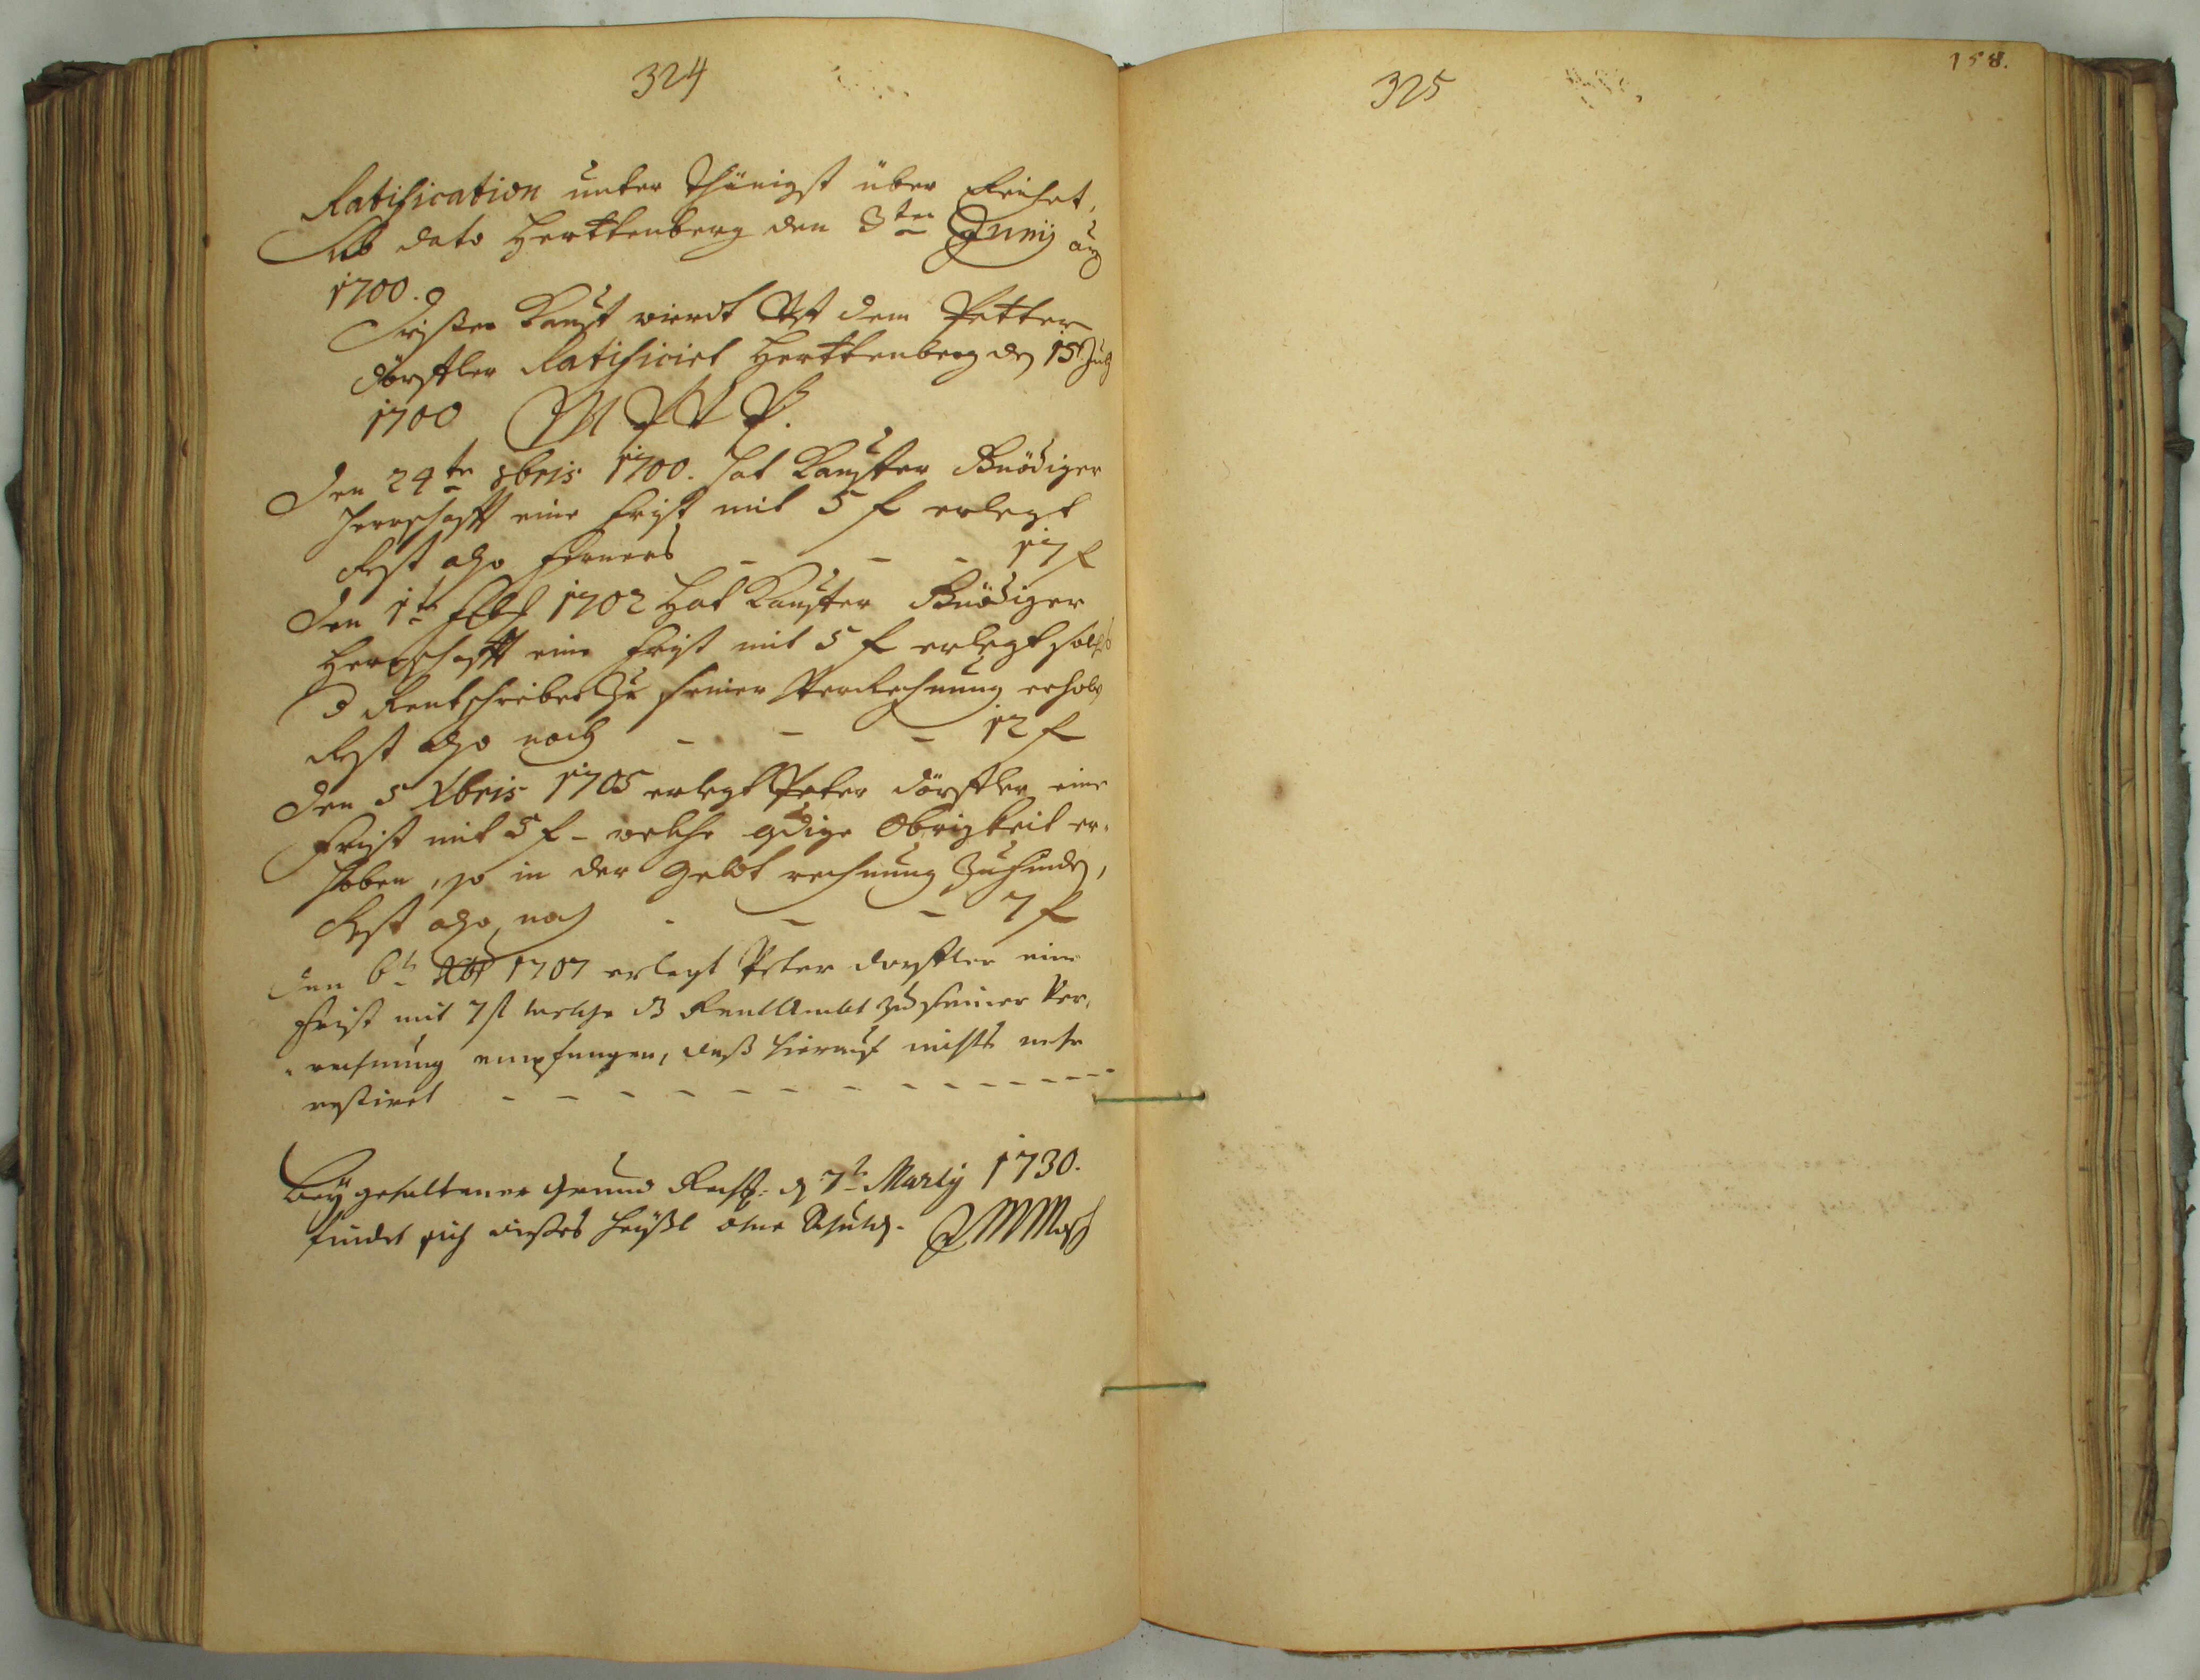 324
Ratification unter thänigst über Reichet,
Ab dato Herttenberg den 3ten Junij aō
1700.
Dißer Kauff wierdt dem Petter
dörffler Ratificirt Herttenberg dē 15 July
1700
Den 24te 8bris 1700. hat Kauffer Gnädiger
Herrschafft eine frist mit 5 f erlegt
Rest also ferners - - - 17 f
Den 1te 1702 Hat Kauffer Gnädiger
Herrschafft eine frist mit 5 f erlegt solche
Rentschreiber Zu seiner Verrechnung erhobē
Rest also noch - - - 12 f
Den 5 Xbris 1705 erlegt Peter dörffler eine
Frist mit 5 f - welche gdige Obrigkeit er,
hoben, so in der geldt rechnung Zu findē,
Rest also noch - - - 7 f
Den 6te Xbr 1707 erlegt Peter dorffler eine
Frist mit 7 fl welche Rentt Ambt zu seiner Ver,
rechnung empfangen, daß hierauf nichts mehr
restiret - - - - - - - - - - -
Bey gehaltener Grund Rechtß: dē 7te Martÿ 1730.
findet sich dießes Heyßl ohne Schuldt.
325
158.